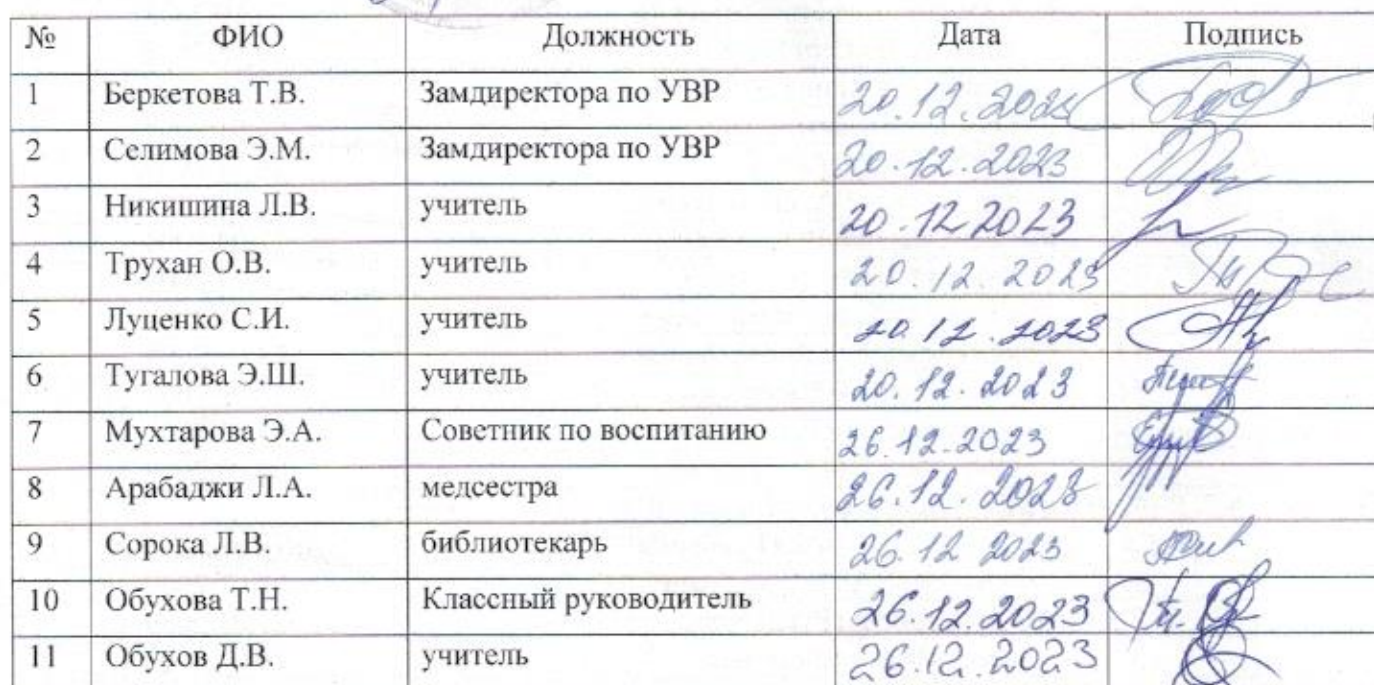 № ФИО Должность Дата Подпись
1 Беркетова Т.В. Замдиректора по УВР 20.12.2023
2 Селимова Э.М. Замдиректора по УВР 20.12.2023
3 Никишина Л.В. учитель 20.12.2023
4 Трухан О.В. учитель 20.12.2023
5 Луценко С.И. учитель 20.12.2023
6 Тугалова Э.Ш. учитель 20.12.2023
7 Мухтарова Э.А. Советник по воспитанию 26.12.2023
8 Арабаджи Л.А. медсестра 26.12.2023
9 Сорока Л.В. библиотекарь 26.12 2023
10 Обухова Т.Н. Классный руководитель 26.12.2023
11 Обухов Д.В. учитель 26.12.2023